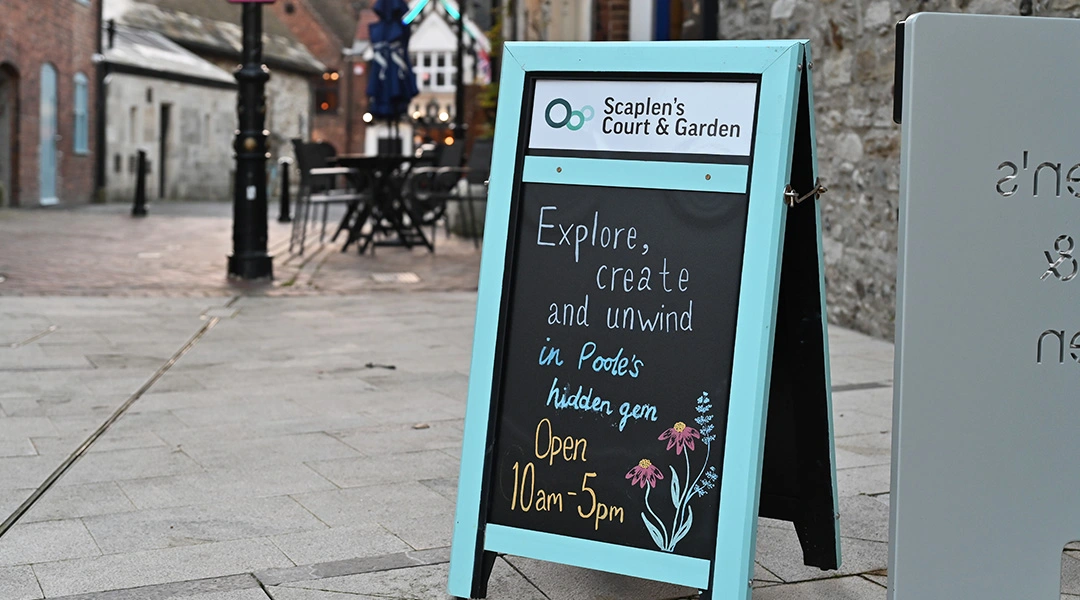 Scaplen's
Court & Garden
Explore,
create
and unwind
in Poole's
hidden gem
Open
10am-5pm
en's
&
en